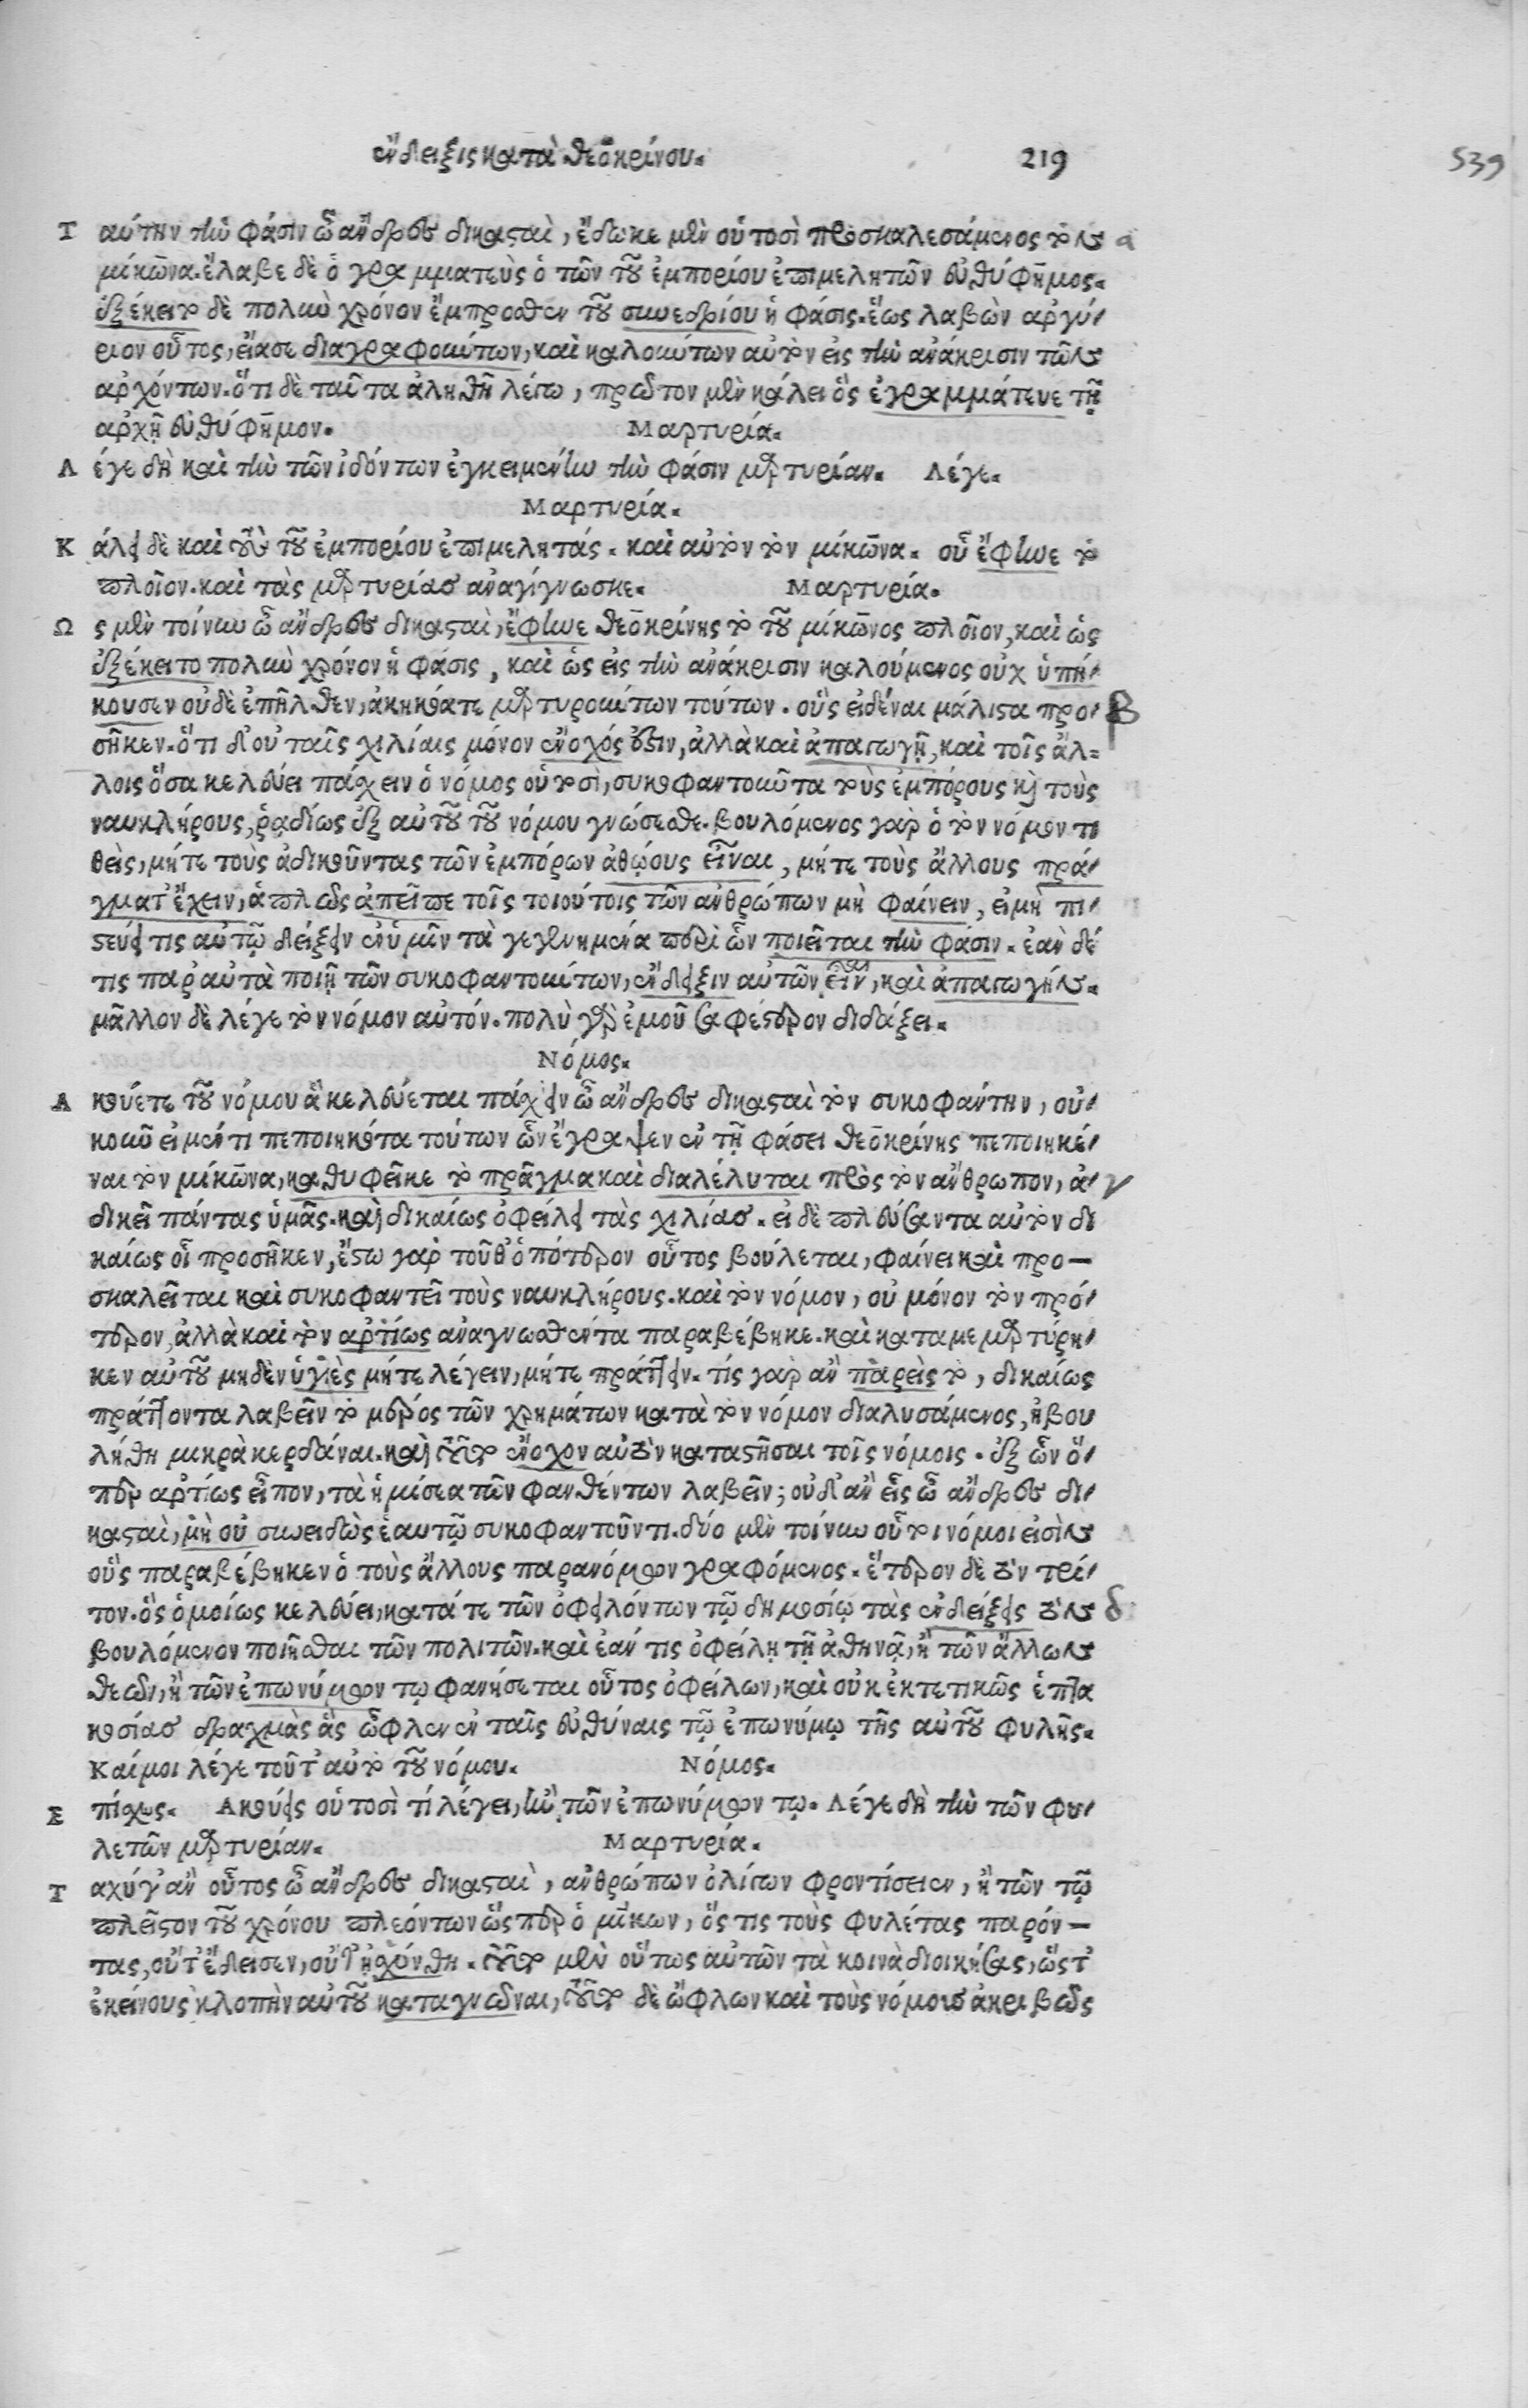 ἔνδειξις κατὰ θεοκρίνου. 219 539
Ταύτην τὴν φάσιν ὦ ἄνδρες δικασταὶ, ἔδωκε μὲν οὑτοσὶ προσκαλεσάμενος τὸν α
μίκωνα. ἔλαβε δὲ ὁ γραμματεὺς ὁ τῶν τοῦ ἐμπορίου ἐπιμελητῶν εὐθύφημος.
ἐξέκειτο δὲ πολὺν χρόνον ἔμπροσθεν τοῦ συνεδρίου ἡ φάσις. ἕως λαβὼν ἀργύ-
ριον οὗτος, εἴασε διαγραφόντων, καὶ καλούντων αὐτὸν εἰς τὴν ἀνάκρισιν τῶν
ἀρχόντων. ὅτι δὲ ταῦτα ἀληθῆ λέγω, πρῶτον μὲν κάλει ὃς ἐγραμμάτευε τῇ
ἀρχῇ εὐθύφημον. Μαρτυρία.
Λέγε δὴ καὶ τὴν τῶν ἰδόντων ἐγκειμένην τὴν φάσιν μαρτυρίαν. Λέγε.
Μαρτυρία.
Κάλει δὲ καὶ τοὺς τοῦ ἐμπορίου ἐπιμελητάς. καὶ αὐτὸν τὸν μίκωνα. οὗ ἔφηνε τὸ
πλοῖον. καὶ τὰς μαρτυρίας ἀναγίγνωσκε. Μαρτυρία.
Ως μὲν τοίνυν ὦ ἄνδρες δικασταὶ, ἔφηνε θεοκρίνης τὸ τοῦ μίκωνος πλοῖον, καὶ ὡς
ἐξέκειτο πολὺν χρόνον ἡ φάσις, καὶ ὡς εἰς τὴν ἀνάκρισιν καλούμενος οὐχ ὑπή-
κουσεν οὐδὲ ἐπῆλθεν, ἀκηκόατε μαρτυρούντων τούτων. οὓς εἰδέναι μάλιστα προ- β
σῆκεν. ὅτι δ' οὐ ταῖς χιλίαις μόνον ἔνοχός ἐστιν, ἀλλὰ καὶ ἀπαγωγῇ, καὶ τοῖς ἄλ-
λοις ὅσα κελεύει πάσχειν ὁ νόμος οὑτοσὶ, συκοφαντοῦντα τοὺς ἐμπόρους καὶ τοὺς
ναυκλήρους, ῥαδίως ἐξ αὐτοῦ τοῦ νόμου γνώσεσθε. βουλόμενος γὰρ ὁ τὸν νόμον τι
θεὶς, μήτε τοὺς ἀδικοῦντας τῶν ἐμπόρων ἀθῴους εἶναι, μήτε τοὺς ἄλλους πρά-
γματ' ἔχειν, ἁπλῶς ἀπεῖπε τοῖς τοιούτοις τῶν ἀνθρώπων μὴ φαίνειν, εἰ μὴ πι-
στεύει τις αὑτῷ δείξειν ἐν ὑμῖν τὰ γεγενημένα περὶ ὧν ποιεῖται τὴν φάσιν. ἐὰν δέ
τις παρ' αὐτὰ ποιῇ τῶν συκοφαντούντων, ἔνδειξιν αὐτῶν εἶν, καὶ ἀπαγωγήν.
μᾶλλον δὲ λέγε τὸν νόμον αὐτόν. πολὺ γὰρ ἐμοῦ σαφέστερον διδάξει.
Νόμος.
Ακούετε τοῦ νόμου ἃ κελεύεται πάσχειν ὦ ἄνδρες δικασταὶ τὸν συκοφάντην, οὐ-
κοῦν εἰ μέν τι πεποιηκότα τούτων ὧν ἔγραψεν ἐν τῇ φάσει θεοκρίνης πεποιηκέ-
ναι τὸν μίκωνα, καθυφεῖκε τὸ πρᾶγμα καὶ διαλέλυται πρὸς τὸν ἄνθρωπον, ἀ- γ
δικεῖ πάντας ὑμᾶς. καὶ δικαίως ὀφείλει τὰς χιλίας. εἰ δὲ πλεύσαντα αὐτὸν δι
καίως οἷ προσῆκεν, ἔστω γὰρ τοῦθ' ὁπότερον οὗτος βούλεται, φαίνει καὶ προ-
σκαλεῖται καὶ συκοφαντεῖ τοὺς ναυκλήρους. καὶ τὸν νόμον, οὐ μόνον τὸν πρό-
τερον, ἀλλὰ καὶ τὸν ἀρτίως ἀναγνωσθέντα παραβέβηκε. καὶ καταμεμαρτύρη-
κεν αὑτοῦ μηδὲν ὑγιὲς μήτε λέγειν, μήτε πράττειν. τίς γὰρ ἂν παρεὶς τὸ, δικαίως
πράττοντα λαβεῖν τὸ μέρος τῶν χρημάτων κατὰ τὸν νόμον διαλυσάμενος, ἠβου
λήθη μικρὰ κερδάναι. καὶ τοῦτο ἔνοχον αὑτὸν καταστῆσαι τοῖς νόμοις. ἐξ ὧν ὅ-
περ ἀρτίως εἶπον, τὰ ἡμίσεα τῶν φανθέντων λαβεῖν; οὐδ' ἂν εἷς ὦ ἄνδρες δι-
κασταὶ, μὴ οὐ συνειδὼς ἑαυτῷ συκοφαντοῦντι. δύο μὲν τοίνυν οὗτοι νόμοι εἰσὶν
οὓς παραβέβηκεν ὁ τοὺς ἄλλους παρανόμων γραφόμενος. ἕτερον δὲ τὸν τρί-
τον. ὃς ὁμοίως κελεύει, κατά τε τῶν ὀφειλόντων τῷ δημοσίῳ τὰς ἐνδείξεις τὸν δ
βουλόμενον ποιῆσθαι τῶν πολιτῶν. καὶ ἐάν τις ὀφείλῃ τῇ ἀθηνᾷ, ἢ τῶν ἄλλων
θεῶν, ἢ τῶν ἐπωνύμων τῳ φανήσεται οὗτος ὀφείλων, καὶ οὐκ ἐκτετικὼς ἑπτα
κοσίας δραχμὰς ἃς ὦφλεν ἐν ταῖς εὐθύναις τῷ ἐπωνύμῳ τῆς αὑτοῦ φυλῆς.
Καί μοι λέγε τοῦτ' αὐτὸ τοῦ νόμου. Νόμος.
Επίσχες. Ακούεις οὑτοσὶ τί λέγει, ἢν τῶν ἐπωνύμων τῳ. Λέγε δὴ τὴν τῶν φυ-
λετῶν μαρτυρίαν. Μαρτυρία.
Ταχύ γ' ἂν οὗτος ὦ ἄνδρες δικασταὶ, ἀνθρώπων ὀλίγων φροντίσειεν, ἢ τῶν τῷ
πλεῖστον τοῦ χρόνου πλεόντων ὥσπερ ὁ μίκων, ὅς τις τοὺς φυλέτας παρόν-
τας, οὔτ' ἔδεισεν, οὔτ' ᾐσχύνθη. τοῦτο μὲν οὕτως αὐτῶν τὰ κοινὰ διοικήσας, ὥστ'
ἐκείνους κλοπὴν αὐτοῦ καταγνῶναι, τοῦτο δὲ ὤφλων καὶ τοὺς νόμους ἀκριβῶς